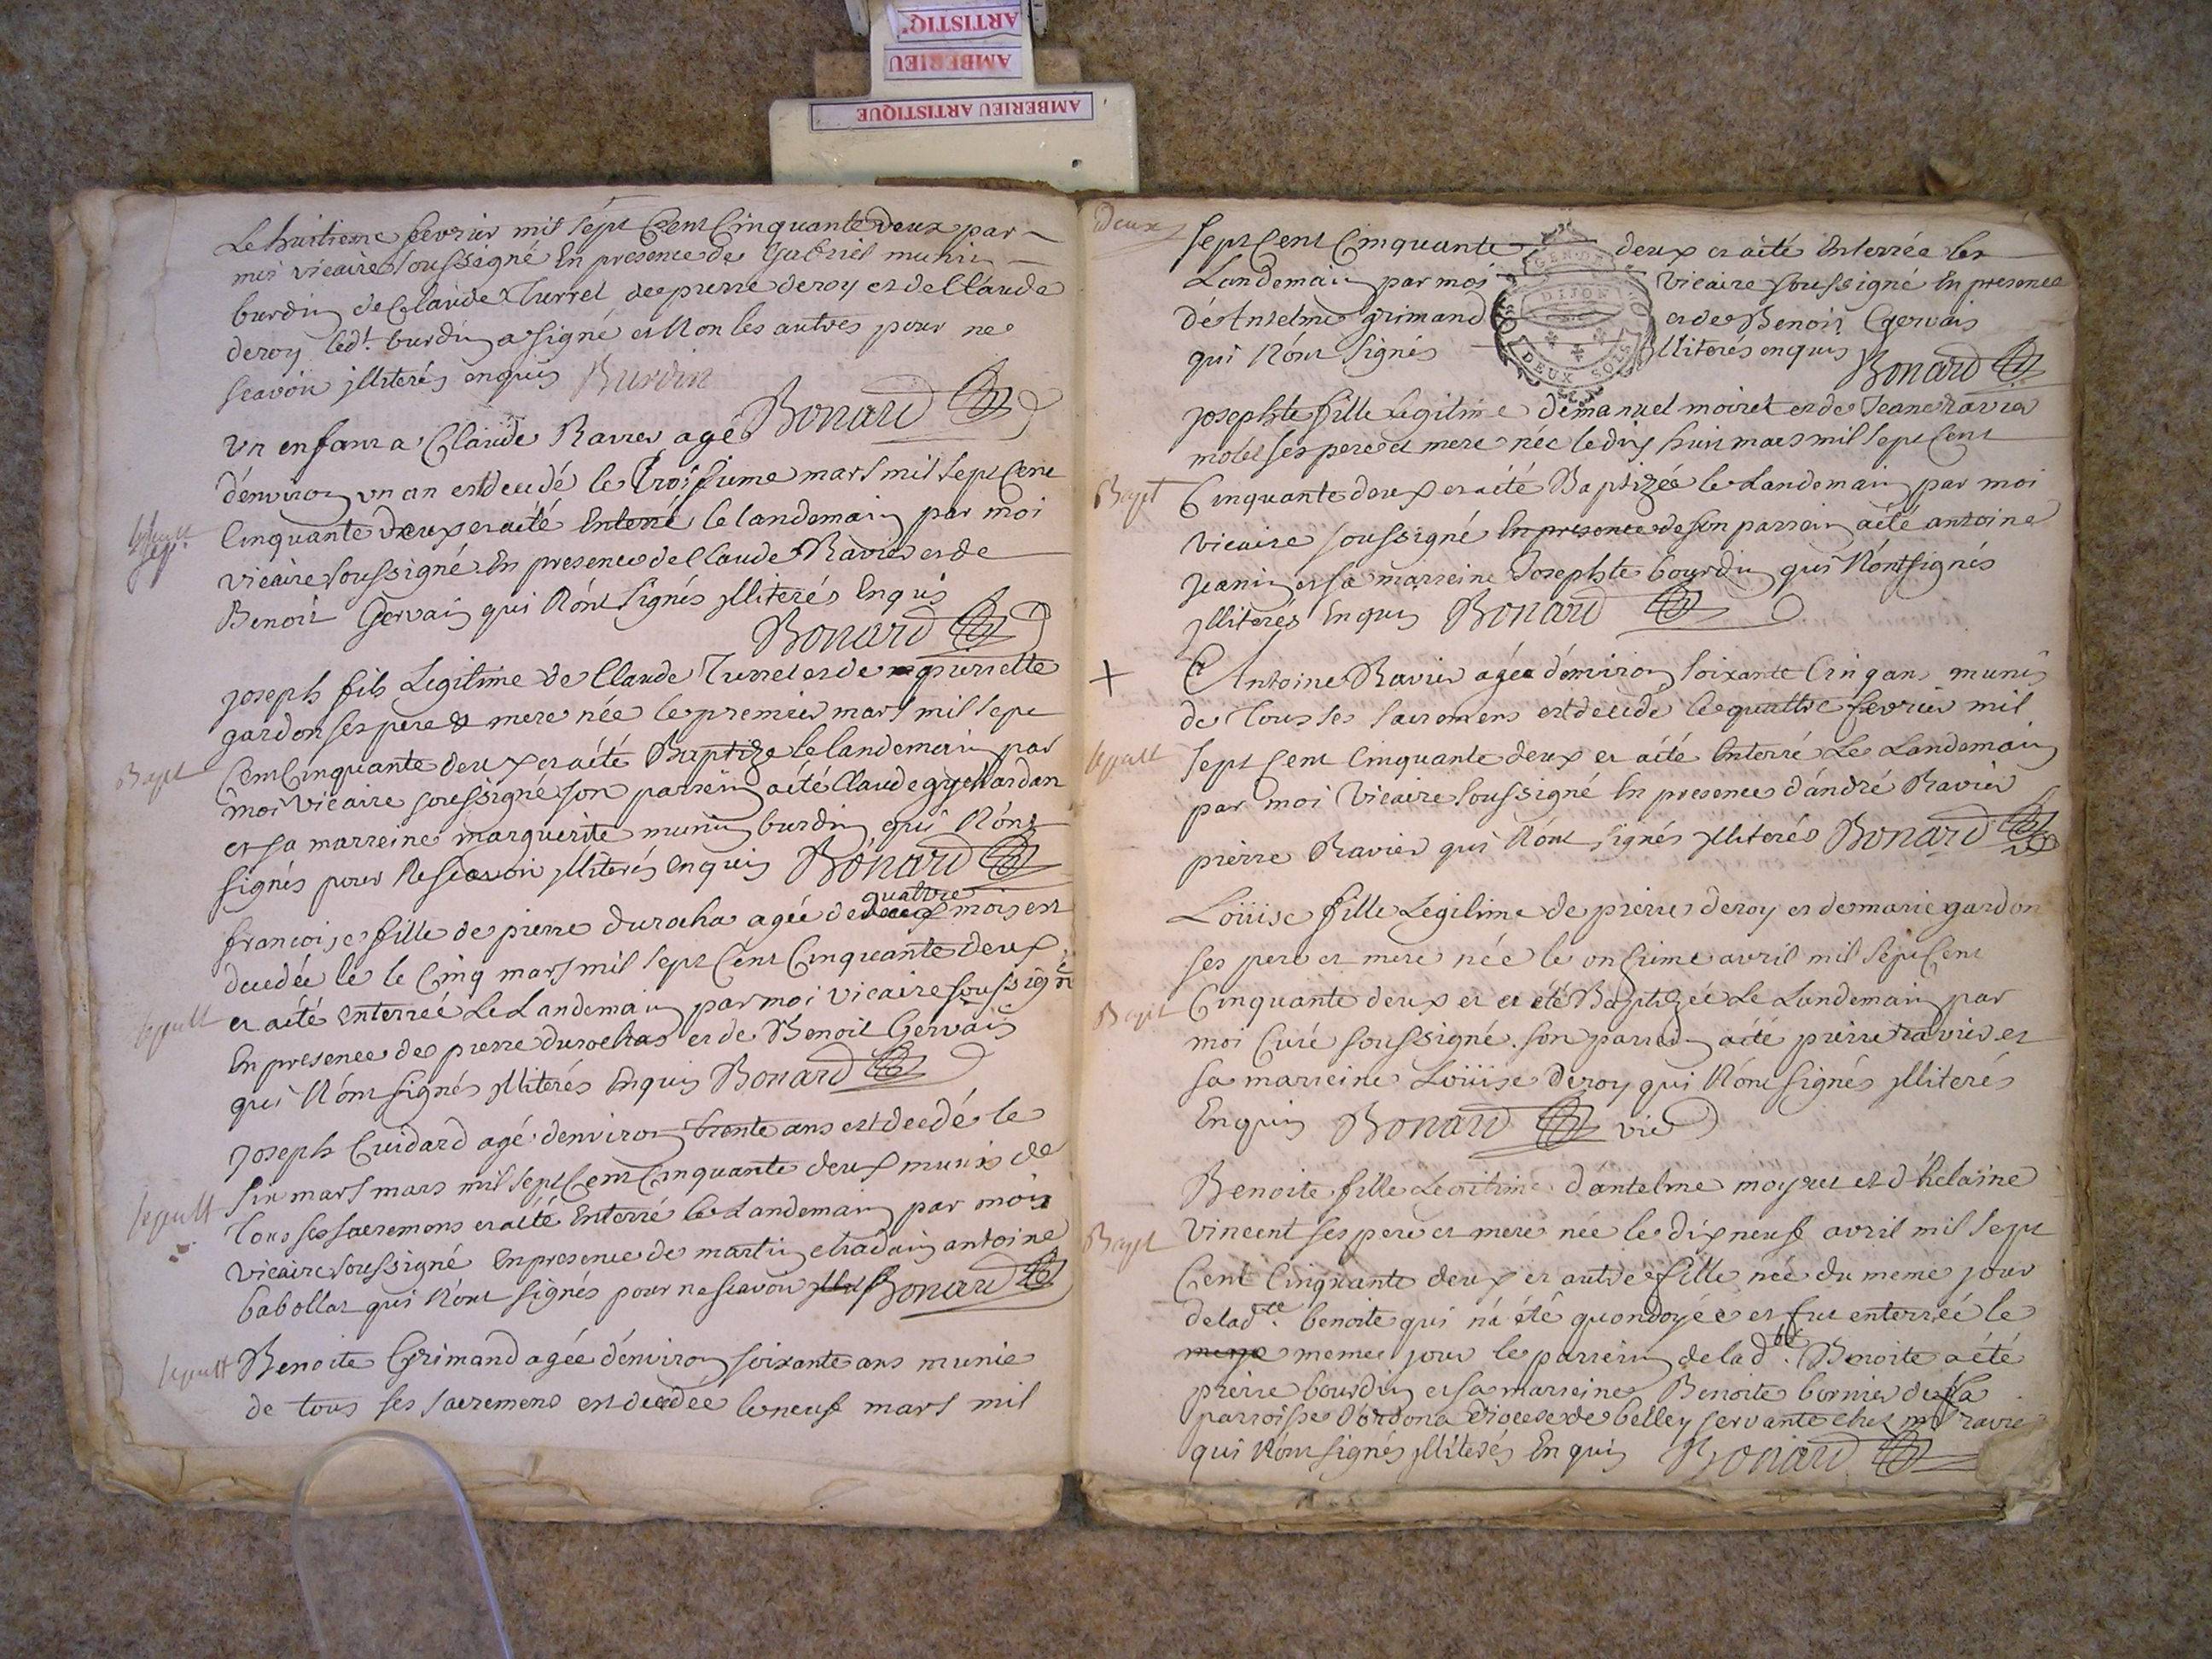 ARTISTIQ'
AMBERIEU
AMBERIEU ARTISTIQUE
Le huitieme fevrier mil sept Cent Cinquante deux par
moi vicaire soussigné En presence de Gabriel munin
burdin de Claude Turrel de pierre deroy et de Claude
deroy led.t burdin a signé et Non les autres pour ne
scavoir jlliterés enquis Burdin
Bonard
Un enfant a Claude Ravier agé
d'environ un an est decedé le Troisieme mars mil sept Cent
sepult
Cinquante deux et a été Enterré le landemain par moi
vicaire soussigné En presence de Claude Ravier et de
Benoit Gervais qui N'ont signés jlliterés Enquis
Bonard
Joseph fils Legitime de Claude Turrel et de pierrette
gardon ses pere & mere née le premier mars mil sept
Bapt
Cent Cinquante deux et a été Baptizé le landemain par
moi vicaire soussigné son parrein a été Claude gardon
et sa marreine marguerite munin burdin qui N'ont
signés pour Ne scavoir jlliterés enquis Bonard
quattre
francoise fille de pierre durocha agée de deux mois est
decedée le le Cinq mars mil sept Cent Cinquante deux
sepult
et a été enterrée Le Landemain par moi vicaire soussigné
En presence de pierre durochas et de Benoit Gervais
qui N'ont signés jlliterés Enquis Bonard
Joseph Cuidard agé d'environ trente ans est decedé le
six mars mars mil sept Cent Cinquante deux munis de
sepult
Tous ses sacremens et a été Enterré le Landemain par moi
vicaire soussigné En presence de martin antoine
babollat qui N'ont signés pour ne scavoir Bonard
sepult Benoite Grimand agée d'environ soixante ans munie
de tous ses sacremens est decedée le neuf mars mil
Deux
sept Cent Cinquante deux et a été Enterrée le
Landemain par moi vicaire soussigné En presence
d'Antelme grimand et de Benoit Gervais
qui N'ont signés jlliterés enquis
GEN. DE
DIJON
DEUX SOLS
Bonard
Josephte fille Legitime d'emanuel moiret et de Jeane ravier
molet ses pere et mere née le dix huit mars mil sept Cent
Bapt
Cinquante deux et a été Baptizée le Landemain par moi
vicaire soussigné En presence de son parrain a été antoine
Jeanin et sa marreine Josephte bourdin qui N'ont signés
jlliterés Enquis Bonard
+ Antoine Ravier agée d'environ soixante Cinq ans munis
de Tous ses sacremens est decedé le quattre fevrier mil
sepult
sept Cent Cinquante deux et a été Enterré Le Landemain
par moi Vicaire soussigné En presence d'andré Ravier
pierre Ravier qui N'ont signés jlliterés Bonard
Loüise fille Legitime de pierre deroy et de marie gardon
ses pere et mere née le onzieme avril mil sept Cent
Bapt
Cinquante deux et a été Baptizée Le Landemain par
moi Curé soussigné. son parrein a été pierre ravier et
sa marreine Loüise deroy qui N'ont signés jlliterés
Enquis Bonard vic
Benoite fille Legitime d'antelme moyret et d'helaine
Bapt
vincent ses pere et mere née le dix neuf avril mil sept
Cent Cinquante deux et autre fille née du meme jour
de lad.te benoite qui n'a été quondoyée et fut enterrée le
meme memee jour le parrein de lad.te Benoite a été
pierre bourdin et sa marreine Benoite bornier de la
parroisse d'ordona diocese de belley servante chez ravier
qui N'ont signés jlliterés Enquis Bonard